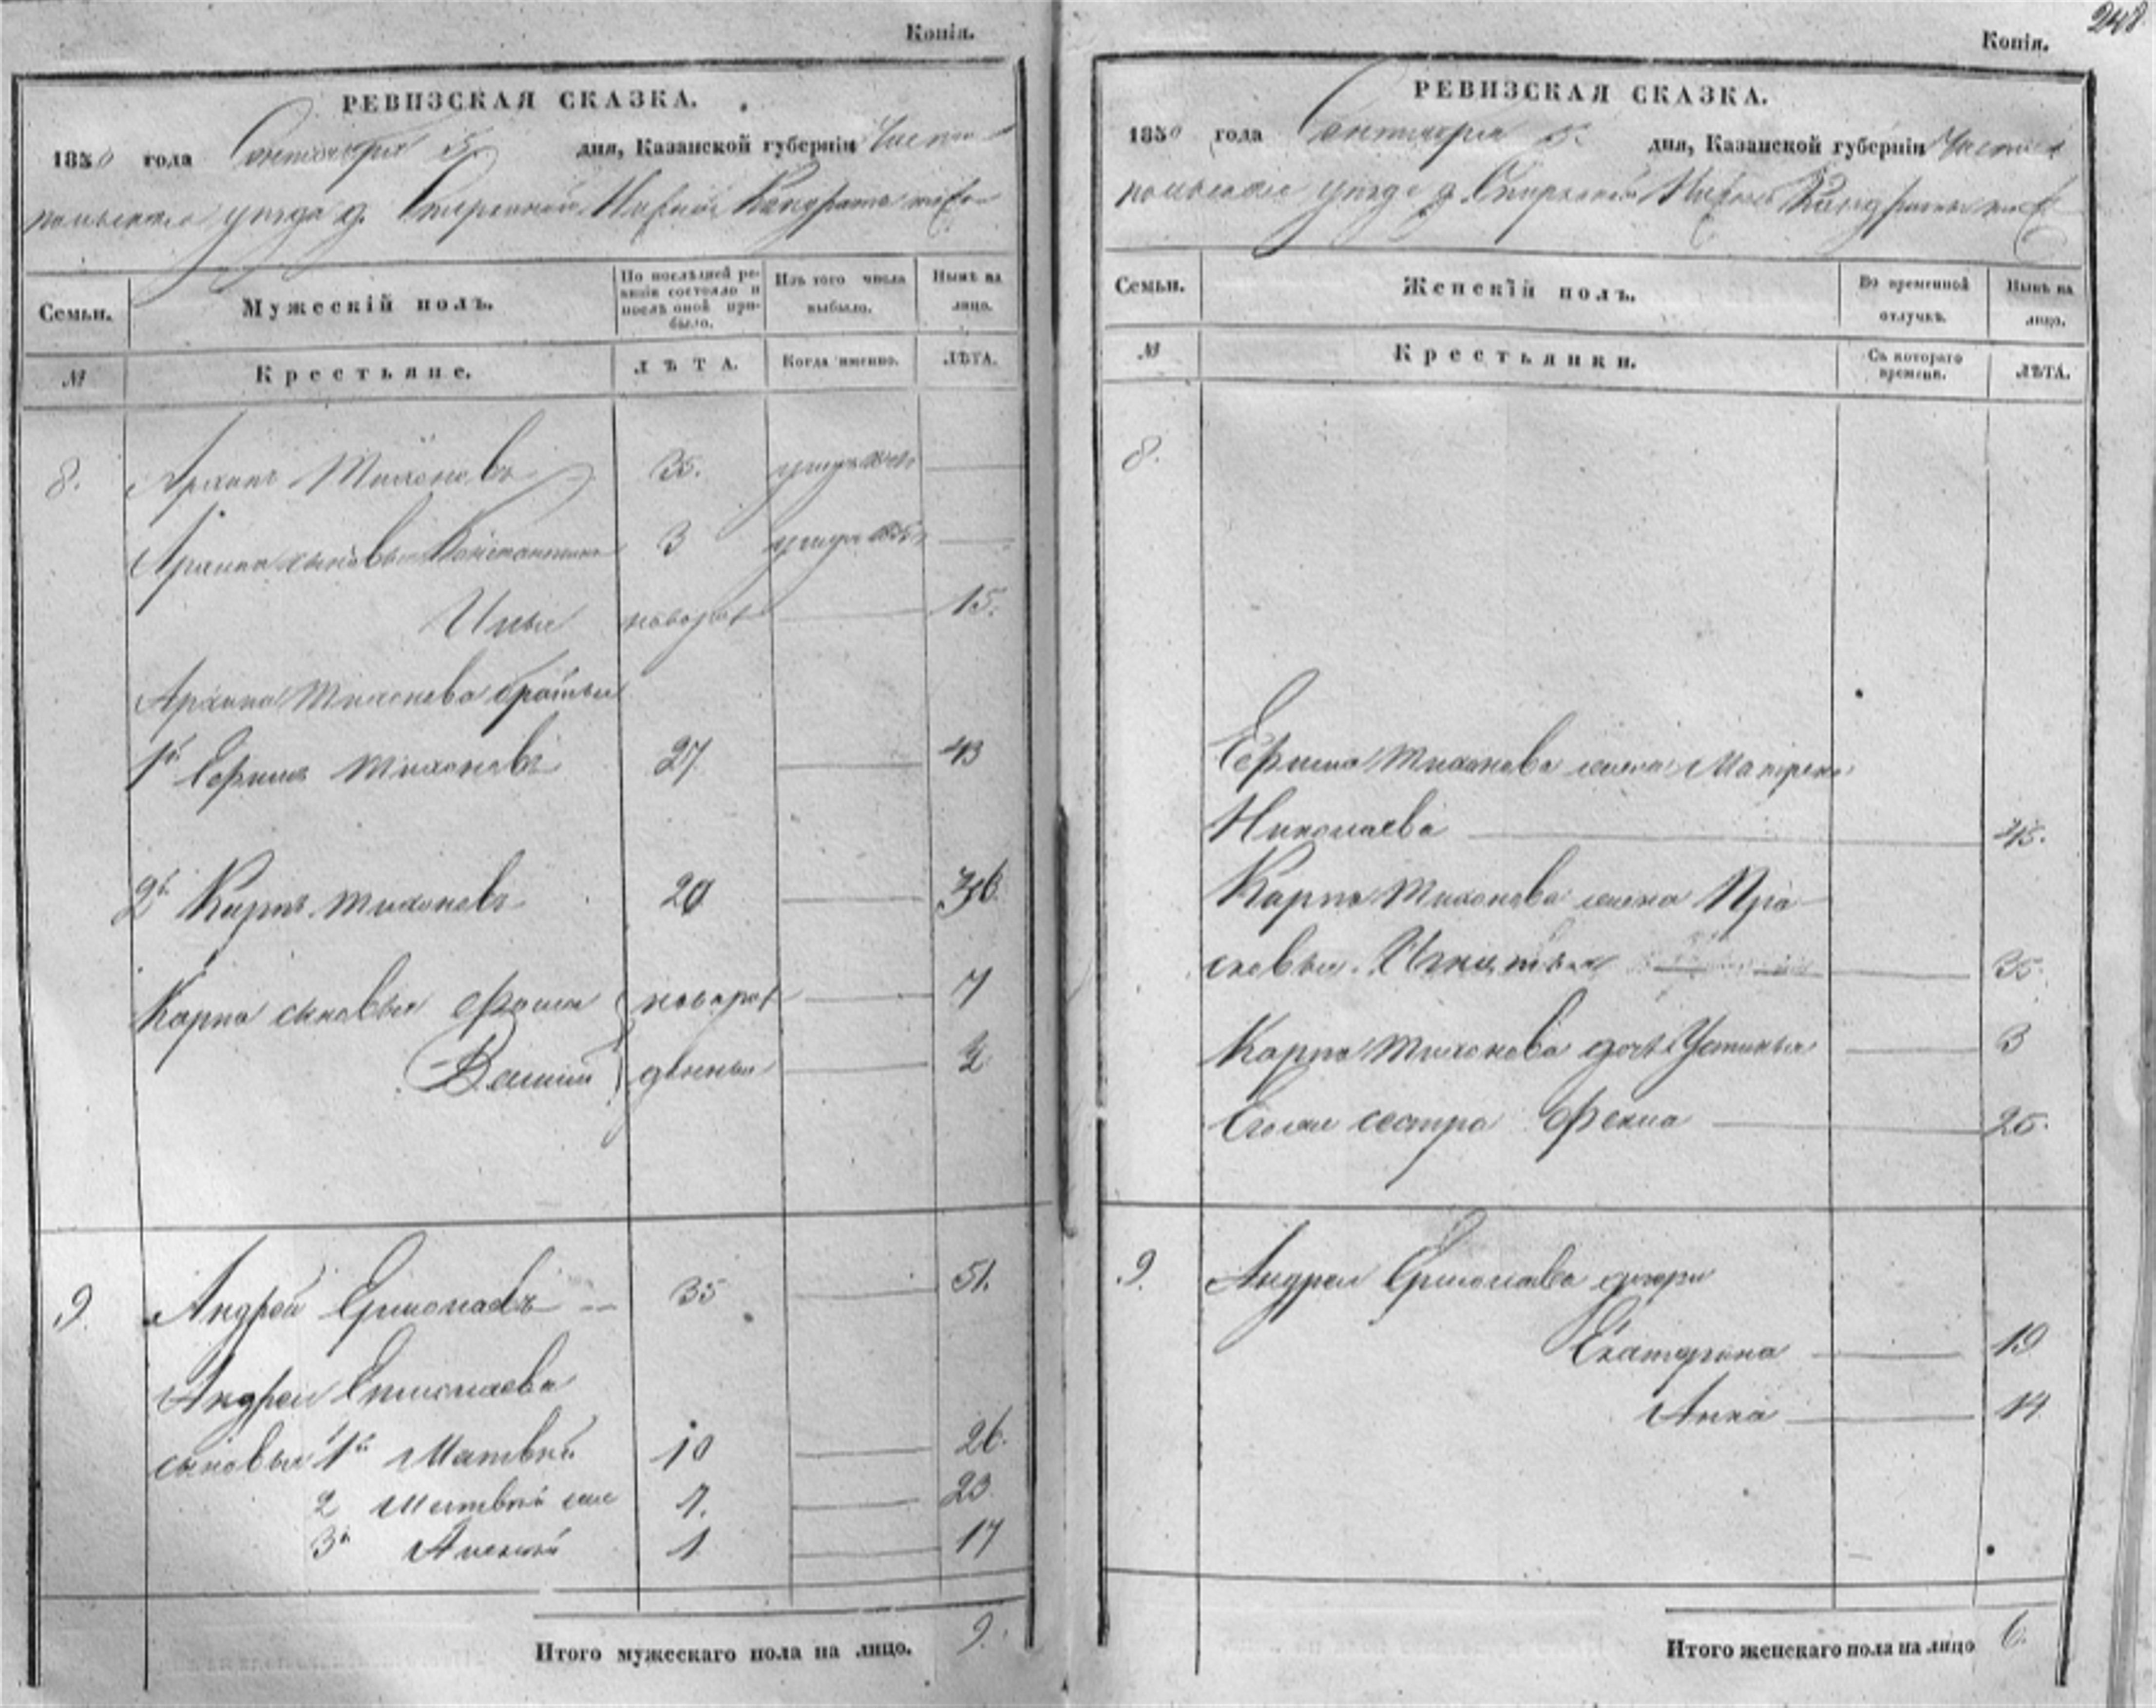 Копія.
РЕВИЗСКАЯ СКАЗКА.
1850 года Сентября 5 дня, Казанской губерніи Чисто
польскаго уезда д.
Семьи. Мужескій полъ. По послѣдней ревизіи состояло и послѣ оной прибыло. Изъ того числа выбыло. Нынѣ на лицо.
№ Крестьяне. ЛѢТА. Когда именно. ЛѢТА.
8. Архипъ Тихоновъ 35.
Архипа сыновья Константинъ 3
Илья новорож 15.
Архипа Тихонова братья
1й Ефимъ Тихоновъ 27 43
2й Карпъ Тихоновъ 20 36
Карпа сыновья Фома новорож 7
Василій денные 2
9. Андрей Ермолаевъ 35 51.
Андрея Ермолаева
сыновья 1й Матвей 10 26.
2 Матвей же 7. 23
3й Алексей 1 17
Итого мужескаго пола на лицо. 9.
248
Копія.
РЕВИЗСКАЯ СКАЗКА.
1850 года Сентября 5. дня, Казанской губерніи Чисто
польскаго уезда д.
Семьи. Женскій полъ. Во временной отлучкѣ. Нынѣ на лицо.
№ Крестьянки. Съ котораго времени. ЛѢТА.
8.
Ефима Тихонова жена Матрена
Николаева 45.
Карпа Тихонова жена Пра
сковья Игнатьева 35.
Карпа Тихонова дочь Устинья 3
Его же сестра Фекла 25.
9. Андрея Ермолаева дочери
Екатерина 19
Анна 14
Итого женскаго пола на лицо 6.